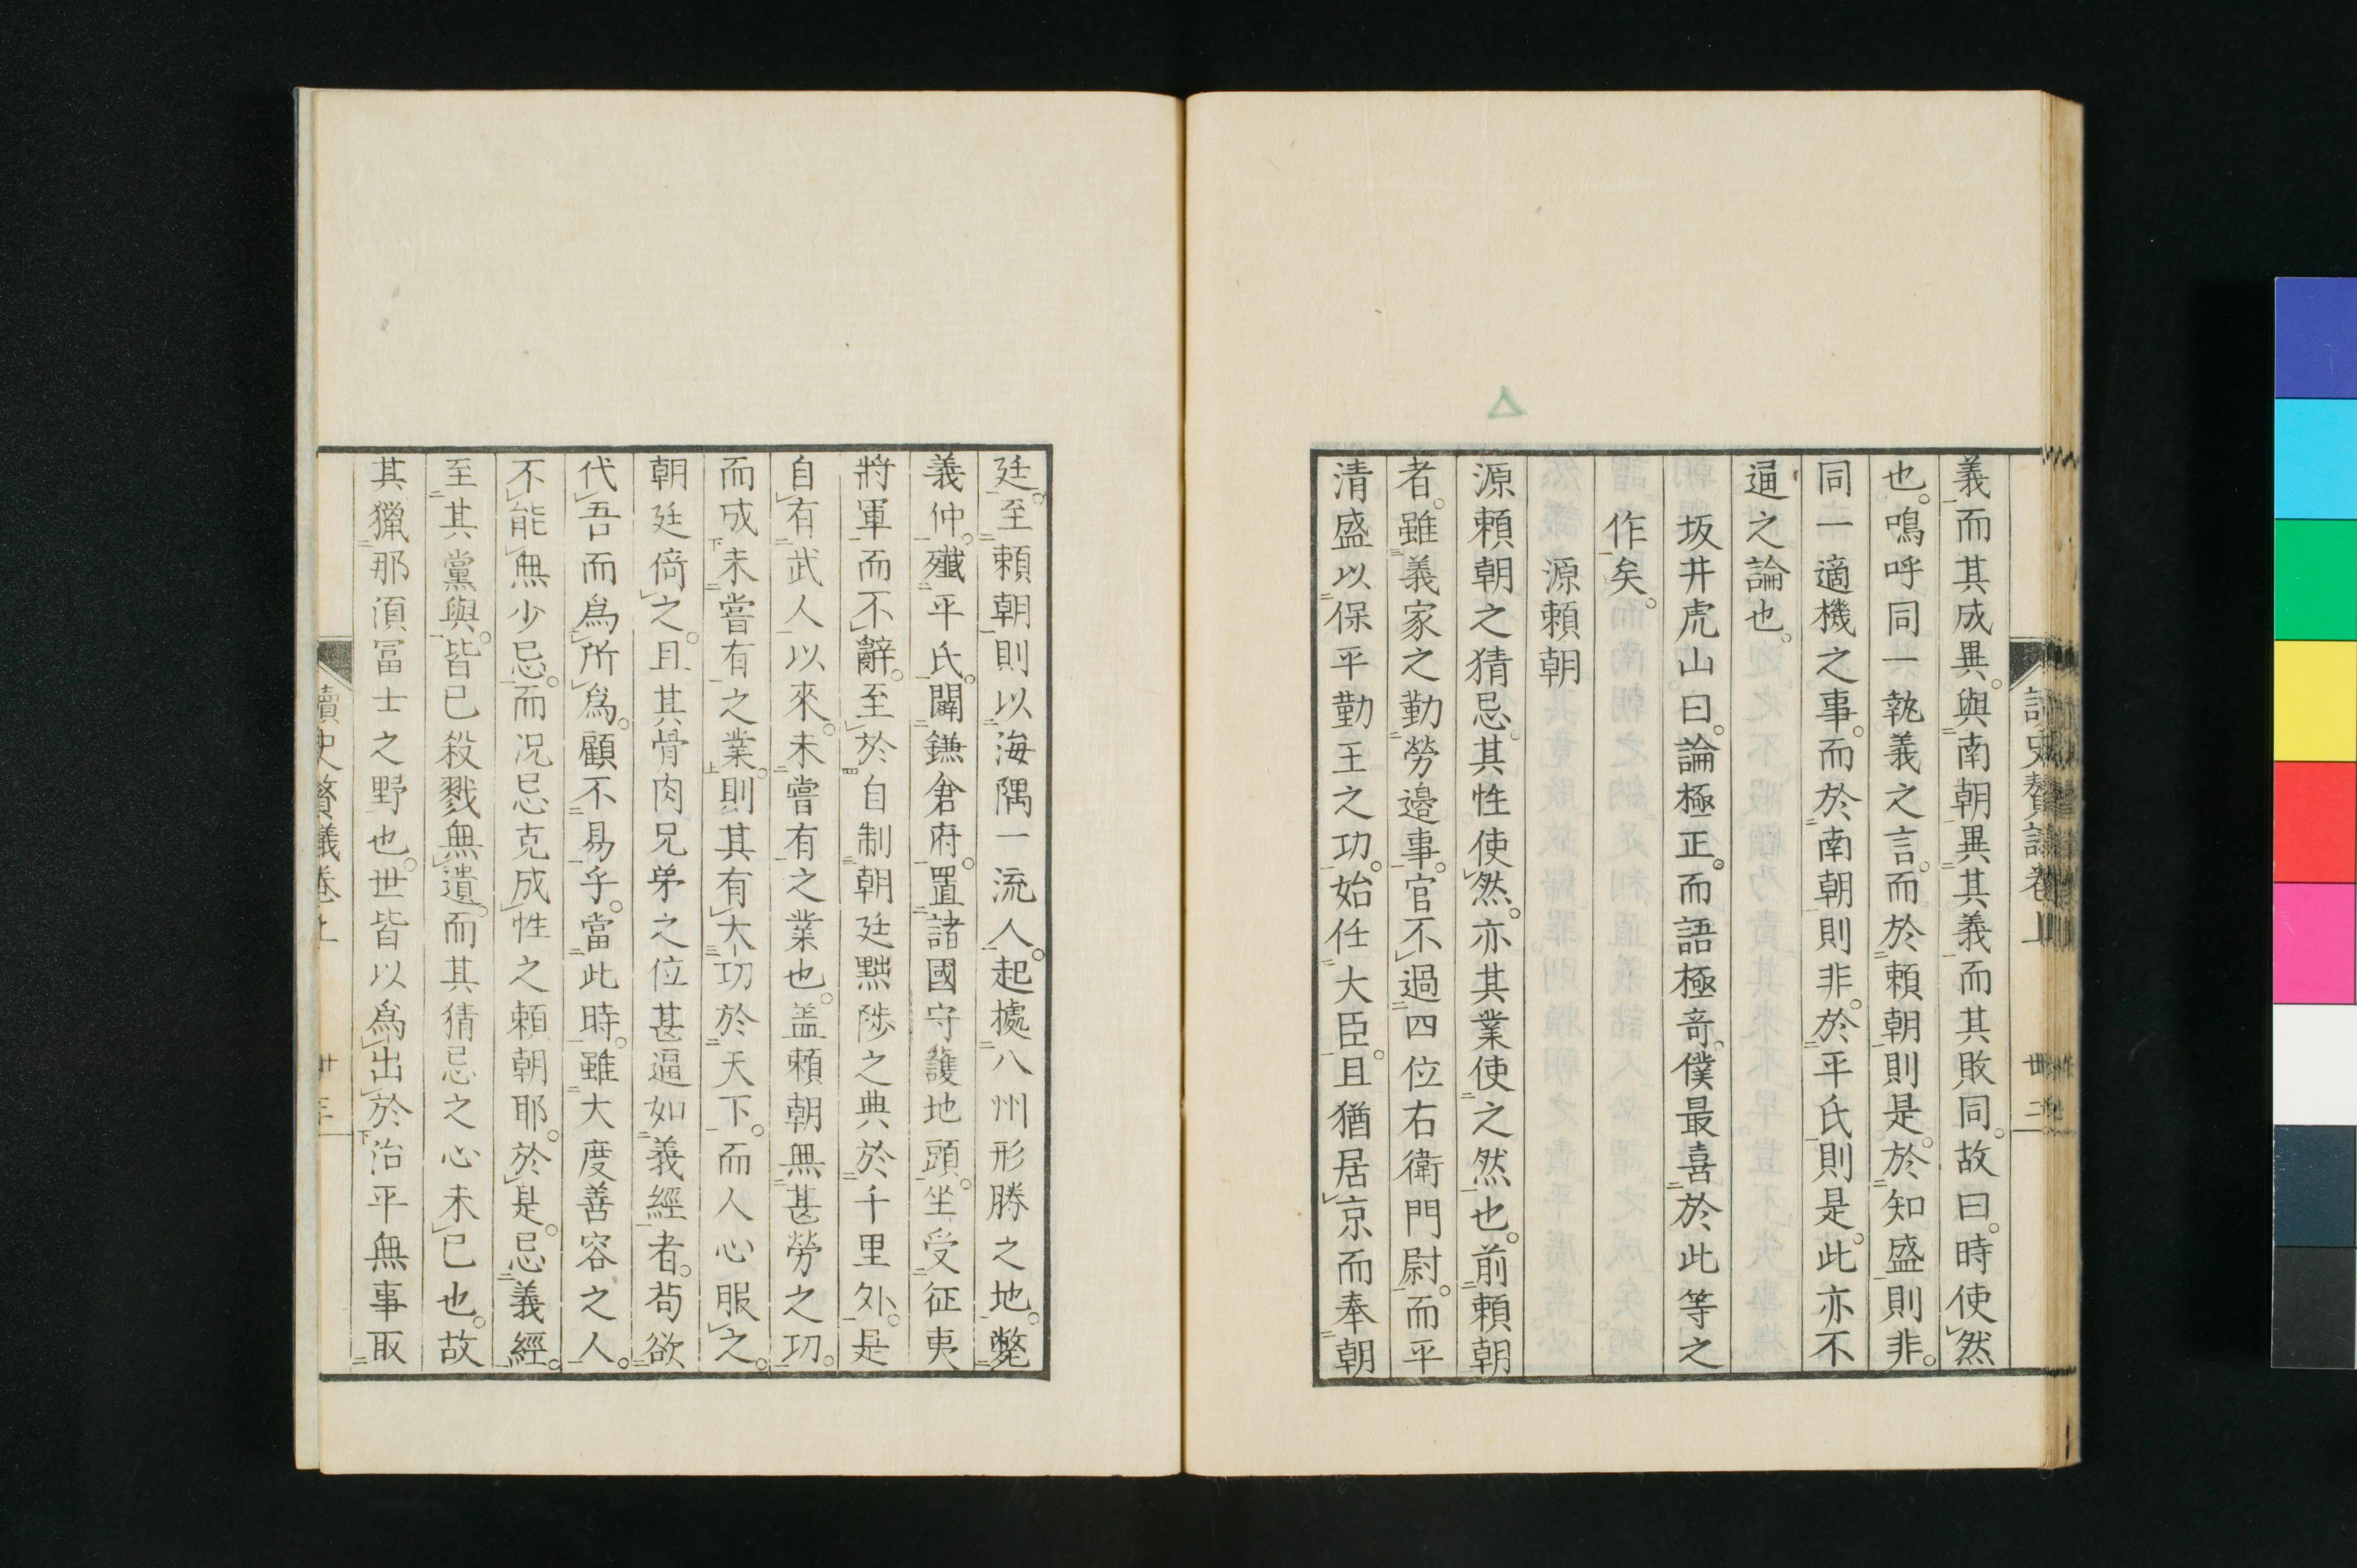 義而其成異。與南朝異其義而其敗同。故曰。時使然
也。嗚呼同一執義之言。而於頼朝則是。於知盛則非。
同一適機之事。而於南朝則非。於平氏則是。此亦不
通之論也。
坂井虎山曰。論極正。而語極奇。僕最喜於此等之
作矣。
源頼朝
源頼朝之猜忌。其性使然。亦其業使之然也。前頼朝
者。雖義家之勤勞邊事。官不過四位右衛門尉。而平
清盛以保平勤王之功。始任大臣。且猶居京而奉朝
廷。至頼朝則以海隅一流人。起據八州形勝之地。斃
義仲。殲平氏。闢鎌倉府。置諸國守護地頭。坐受征夷
將軍而不辭。至於自制朝廷黜陟之典於千里外。是
自有武人以來。未嘗有之業也。盖頼朝無甚勞之功。
而成未嘗有之業。則其有大功於天下。而人心服之。
朝廷倚之。且其骨肉兄弟之位甚逼如義經者。苟欲
代吾而爲所爲。顧不易乎。當此時。雖大度善容之人。
不能無少忌。而况忌克成性之頼朝耶。於是。忌義經。
至其黨與。皆已殺戮無遺。而其猜忌之心未已也。故
其獵那須冨士之野也。世皆以爲出於治平無事取
讀史贅議卷上